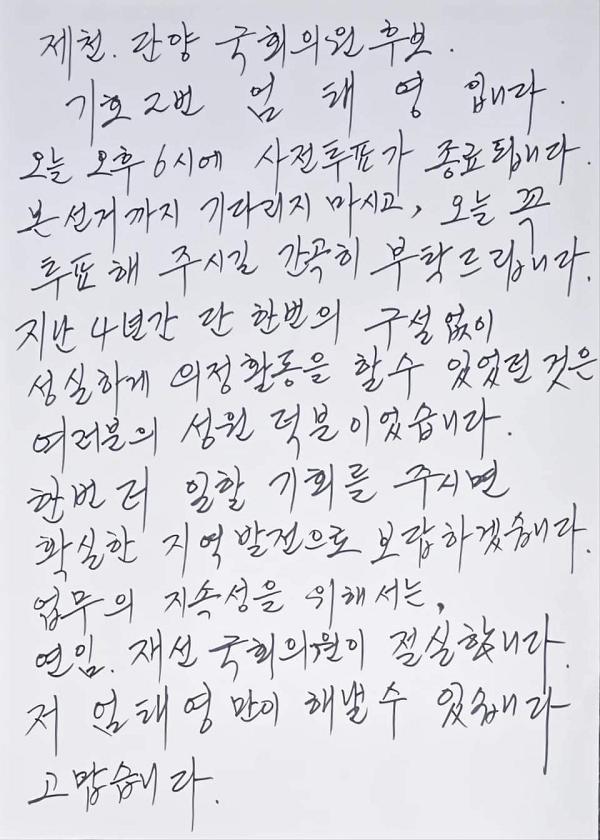 제천. 단양 국회의원 후보.
기호 2번 엄 태 영 입니다.
오늘 오후 6시에 사전투표가 종료됩니다.
본선거까지 기다리지 마시고, 오늘 꼭
투표해 주시길 간곡히 부탁드립니다.
지난 4년간 단 한번의 구설없이
성실하게 의정활동을 할수 있었던 것은
여러분의 성원 덕분이었습니다.
한번 더 일할 기회를 주시면
확실한 지역발전으로 보답하겠습니다.
업무의 지속성을 위해서는,
연임. 재선 국회의원이 절실합니다.
저 엄태영만이 해낼수 있습니다
고맙습니다.